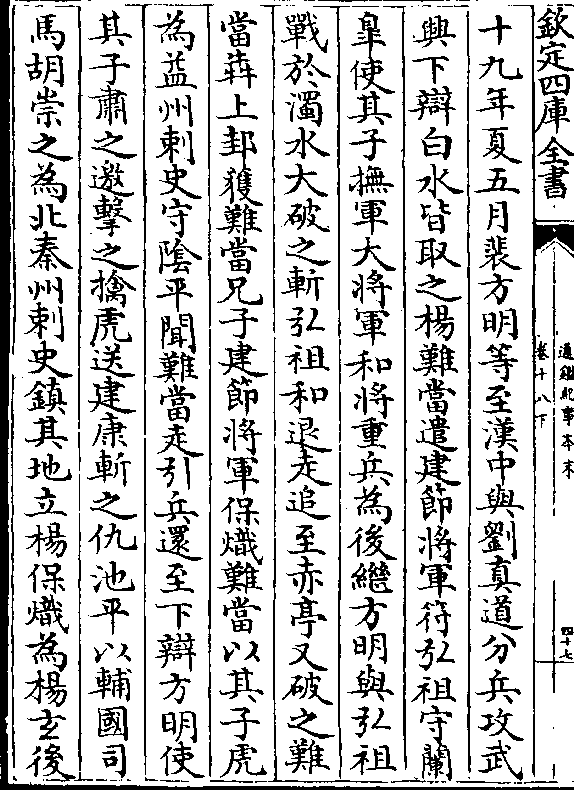 欽定四庫全書
通鑑紀事本末
卷十八下
四十七
十九年夏五月裴方明等至漢中與劉真道分兵攻武
興下辯白水皆取之楊難當遣建節將軍符弘祖守蘭
臯使其子撫軍大將軍和將重兵為後繼方明與弘祖
戰於濁水大破之斬弘祖和退走追至赤亭又破之難
當犇上邽獲難當兄子建節將軍保熾難當以其子虎
為益州刺史守隂平聞難當走引兵還至下辯方明使
其子肅之邀擊之擒虎送建康斬之仇池平以輔國司
馬胡崇之為北秦州刺史鎮其地立楊保熾為楊玄後